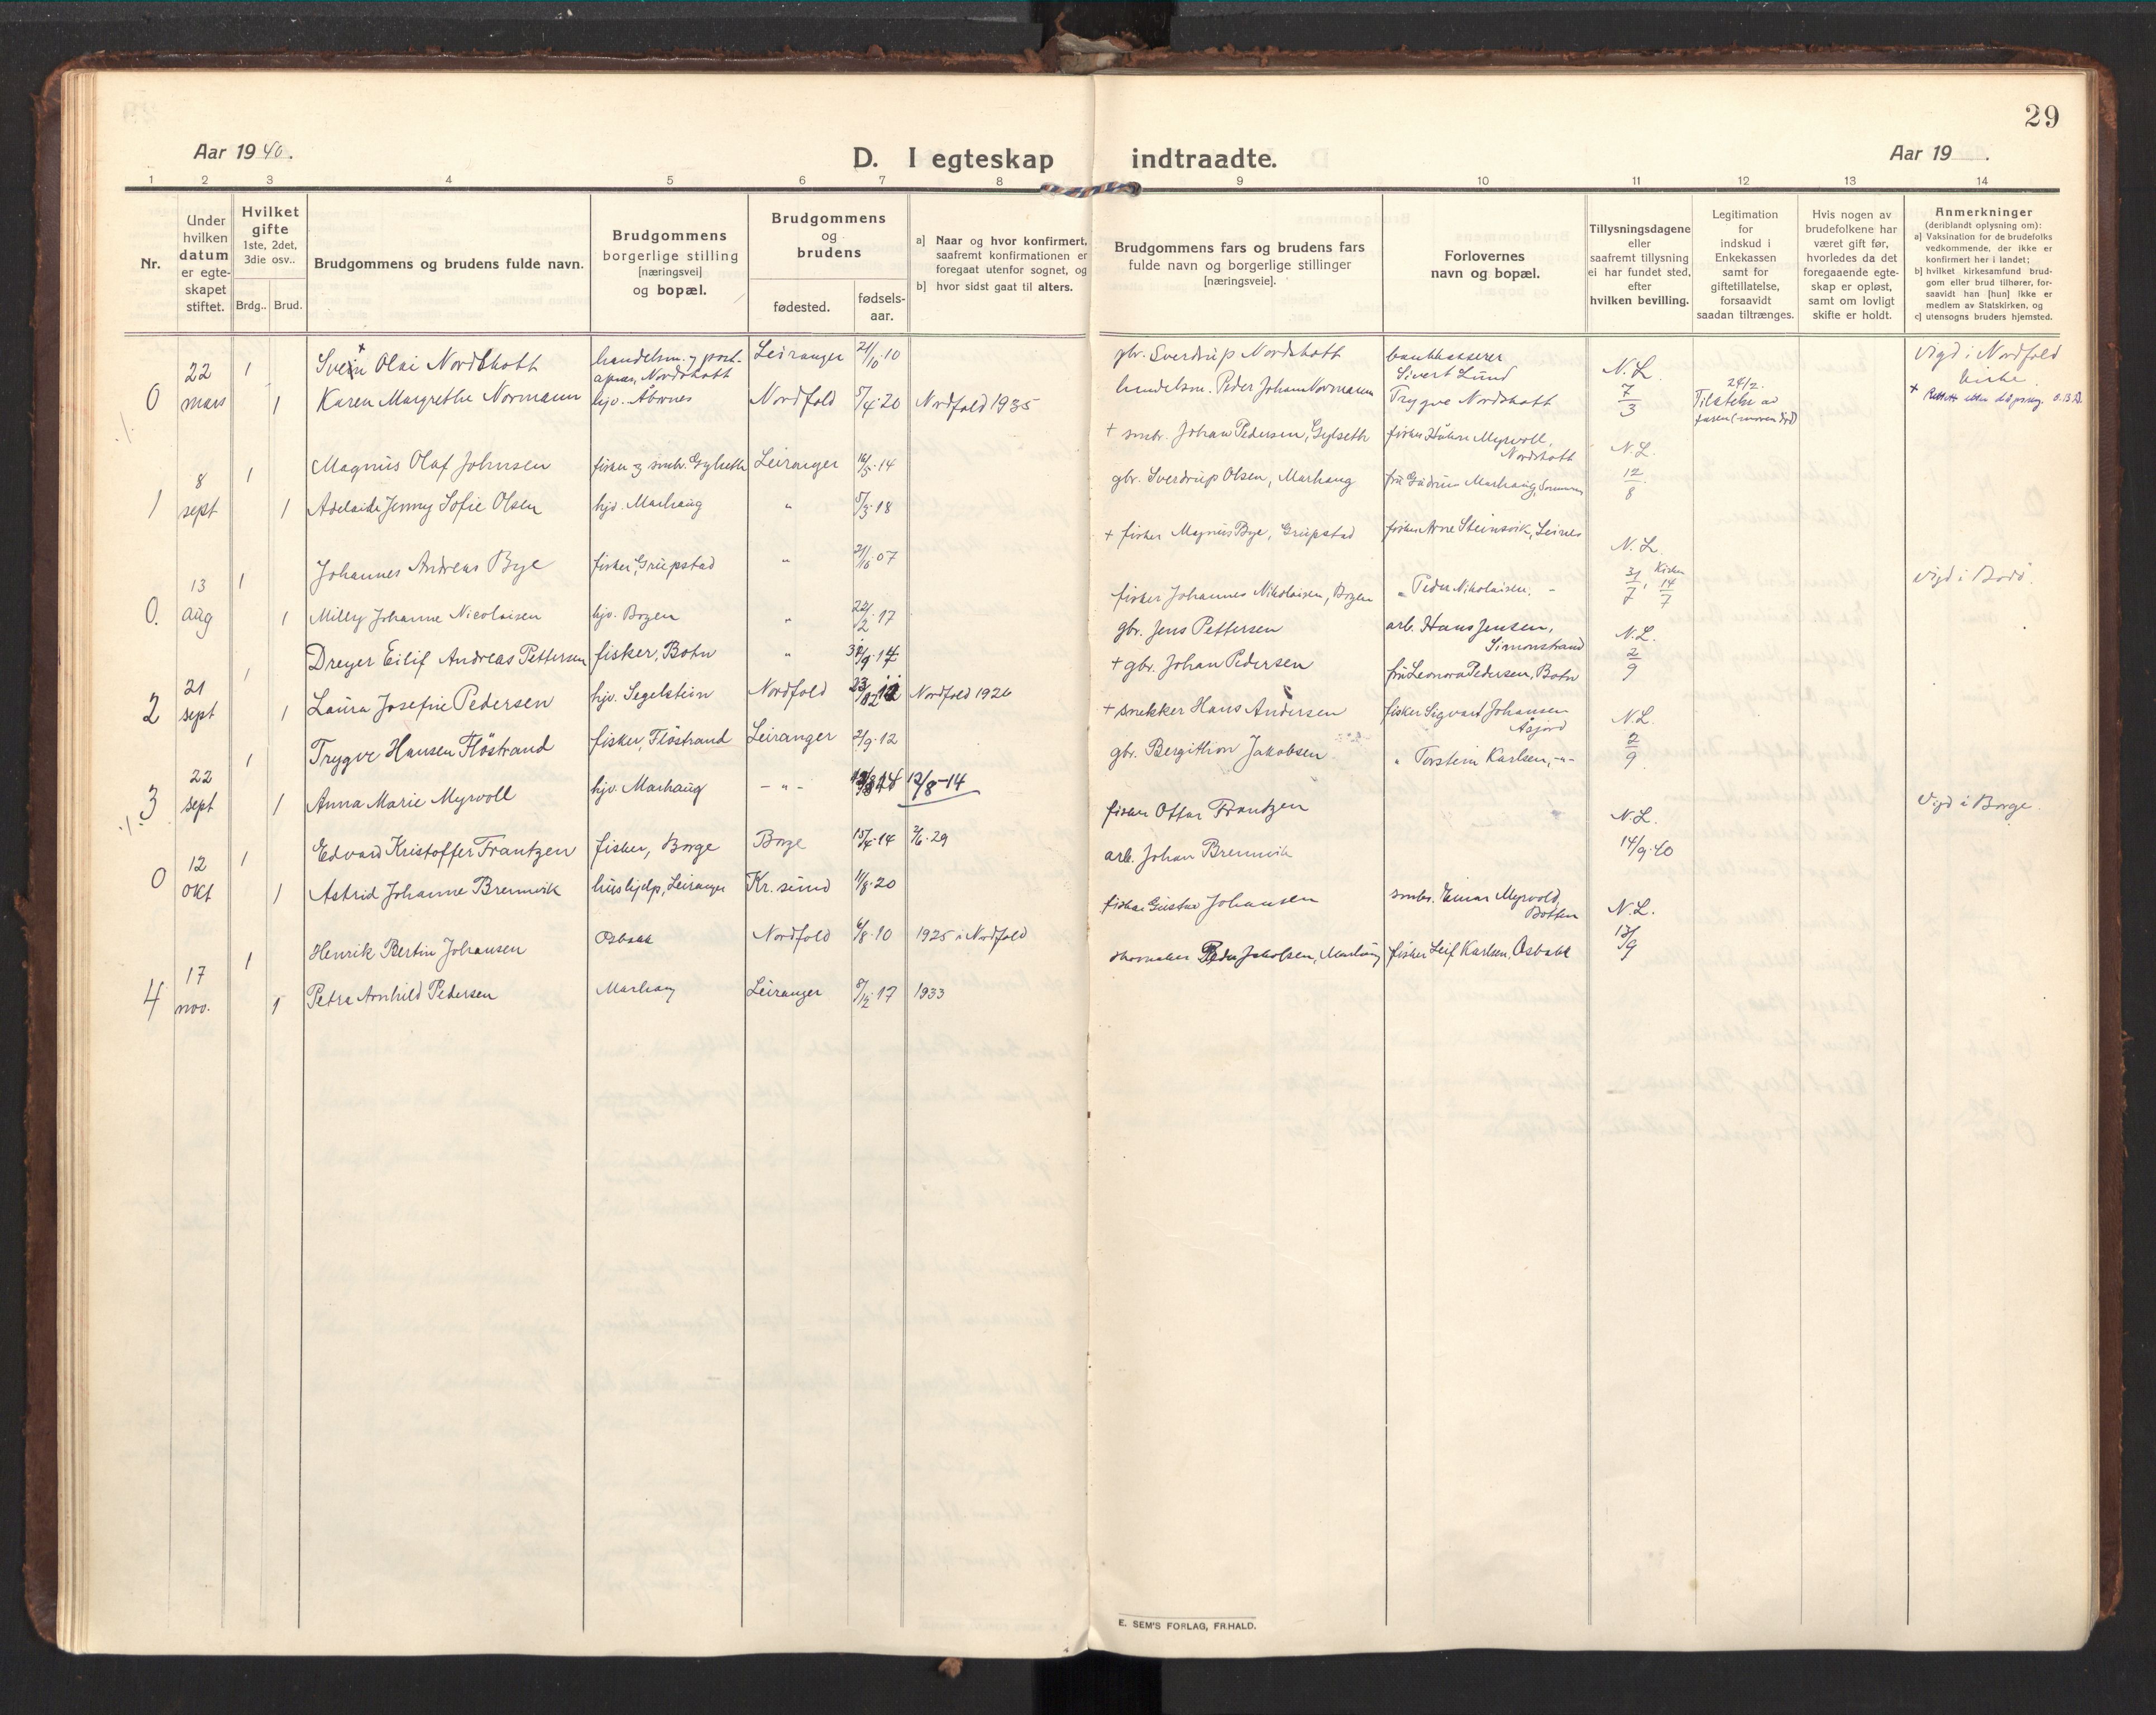 29
Aar 1940.
D. I egteskap indtraadte.
Aar 19 .
1 2 3 4 5 6 7 8 9 10 11 12 13 14
Nr.
Under hvilken datum er egte- skapet stiftet.
Hvilket gifte 1ste, 2det, 3die osv..
Brdg.. Brud.
Brudgommens og brudens fulde navn.
Brudgommens borgerlige stilling [næringsvei] og bopæl.
Brudgommens og brudens
fødested.
fødsels- aar.
a] Naar og hvor konfirmert, saafremt konfirmationen er foregaat utenfor sognet, og
b] hvor sidst gaat til alters.
Brudgommens fars og brudens fars fulde navn og borgerlige stillinger [næringsveie].
Forlovernes navn og bopæl.
Tillysningsdagene eller saafremt tillysning ei har fundet sted, efter hvilken bevilling.
Legitimation for indskud i Enkekassen samt for giftetillatelse, forsaavidt saadan tiltrænges.
Hvis nogen av brudefolkene har været gift før, hvorledes da det foregaaende egte- skap er opløst, samt om lovligt skifte er holdt.
Anmerkninger (deriblandt oplysning om):
a] Vaksination for de brudefolks vedkommende, der ikke er konfirmert her i landet;
b] hvilket kirkesamfund brud- gom eller brud tilhører, for- saavidt han [hun] ikke er medlem av Statskirken, og
c] utensogns bruders hjemsted.
0 22 mars 1 Svein Olai Nordskott handelsm. og post- Nordskott Leiranger 21/10-10 gbr. Sverdrup Nordskott bankkasserer Sivert Lund N.L. 7/3 Vigd i Nordfold kirke
1 Karen Margrethe Normann hjv. Åbornes Nordfold 5/4-20 Nordfold 1935 handelsm. Peder Johan Normann Trygve Nordskott 24/2. Tilatelse av faren (moren død)
1 8 sept 1 Magnus Olaf Johnsen fisker og smbr. Gylseth Leiranger 16/5-14 + smbr. Johan Pedersen, Gylseth fisker Håkon Myrvoll, Nordskott N.L. 12/8
1 Adelaide Jenny Sofie Olsen hjv. Marhaug " 5/3-18 gbr. Sverdrup Olsen, Marhaug frü Gudrun Marhaug,
0. 13 aug 1 Johannes Andreas Bye fisker, Grupstad " 21/6-07 + fisker Magnus Bye, Grupstad fisker Arne Steinsvik, Leines N.L. 31/7, 14/7 Vigd i Bodø.
1 Milly Johanne Nicolaisen hjv. Bogen " 22/2-17 fisker Johannes Nikolaisen, Bogen " Peder Nikolaisen, -
2 21 sept 1 Dreyer Eilif Andreas Pettersen fisker, Botn " gbr. Jens Pettersen arb. Hans Jensen, Simonstrand N.L. 2/9
1 Laura Josefine Pedersen hjv. Segelstein Nordfold Nordfold 1926 + gbr. Johan Pedersen frü Leonora Pedersen, Botn
3 22 sept 1 Trygve Hansen Fløstrand fisker, Fløstrand Leiranger 2/9-12 + snekker Hans Andersen fisker Sigvart Johansen Åsjord N.L. 2/9
1 Anna Marie Myrvoll hjv. Marhaug -"- 12/8-14 gbr. Bergithon Jakobsen " Torstein Karlsen, -"-
0 12 okt 1 Edvard Kristoffer Frantzen fisker, Borge Borge 15/4-14 2/6-29 fisker Ottar Frantzen N.L. 14/9-40 Vigd i Borge.
1 Astrid Johanne Bremnvik hüshjelp, Leiranger Kr.sünd 11/8-20 arb. Johan Bremnvik
4 17 nov. 1 Henrik Bertin Johansen Osbakk Nordfold 6/8-10 1925 i Nordfold fisker Gustav Johansen smbr. Einar Myrvold, Botten N.L. 13/9
1 Petra Arnhild Pedersen Marhaug Leiranger 5/12-17 1933 skomaker Peder Jakobsen, Marhaug fisker Leif Karlsen, Osbakk
E. SEM'S FORLAG, FR.HALD.